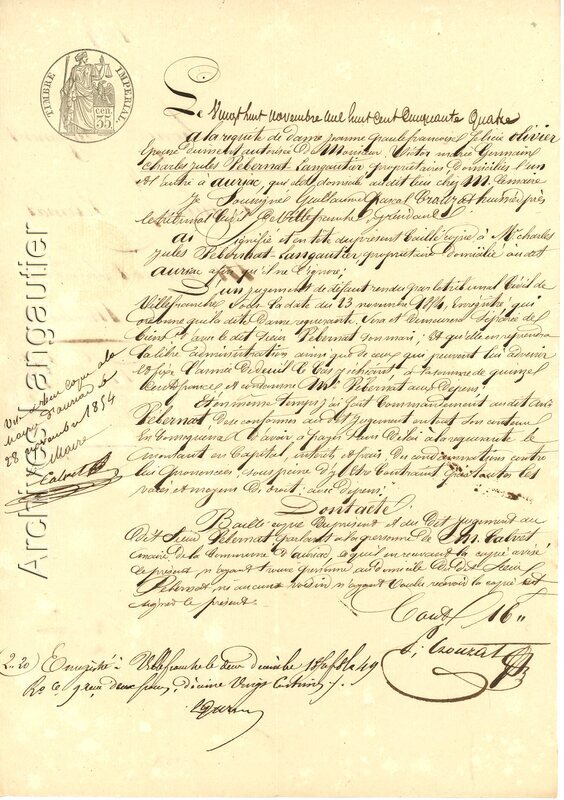 TIMBRE IMPERIAL
35 cen.
Le Vingt huit novembre mil huit cent Cinquante Quatre
a la requête de dame jeanne francoise Felicie olivier
Epouse dument autorisée De Monsieur Victor marie Germain
Charles jules Pebernat-Langautier propriétaires Domiciliés l'un
Et l'autre à auriac, qui domicile audit lieu chez M. Lemaire
Je Soussigné Guillaume huissier près
le tribunal Civil De Villefranche
ai Signifié et en tête du présent baillé copie à Mr charles
jules Pebernat-Langautier propriétaire Domicilié audit
auriac afin qu'il ne l'ignore;
D'un jugement de défaut rendu par le tribunal Civil de
Villefranche Sous la date du 13 novembre 1854, Enregistré, qui
ordonne que la dite Dame requerante Sera et Demeurera Séparée de
biens avec le dit Sieur Pebernat Son mari; Et qu'elle en reprendra
la libre administration ainsi que de ceux qui peuvent lui advenir
la somme de quinze
cents francs Et condamne Mr Pebernat aux Depens
Et en même temps j'ai fait Commandement au dit Sieur
Pebernat De se conformer au dit jugement en tout Son contenu
En Consequence D'avoir à payer Sans Delai à la requerante le
montant en Capital, interets et frais Des condamnations contre
lui prononcées, sous peine D'y Etre Contraint par toutes les
voies et moyens De Droit; avec depens;
Dont acte
Baillé copie Du present et du Dit jugement au
Dit Sieur Pebernat parlant à la personne de M. Calvet
maire de la Commune D'auriac, ce qui en recevant la copie a visé
le présent n'ayant trouvé personne au domicile du dit Sieur
Pebernat ni aucun voisin n'ayant voulu recevoir la copie Et
signer le present
Cout 16"
Vu et reçu copie à la
mairie d'auriac le
28 novembre 1854
Le Maire
Calvet
Archives Langautier
(2..20) Enregistré à Villefranche le deux décembre 1854 fo 49
Ro C. reçu deux francs, décime Vingt Centimes